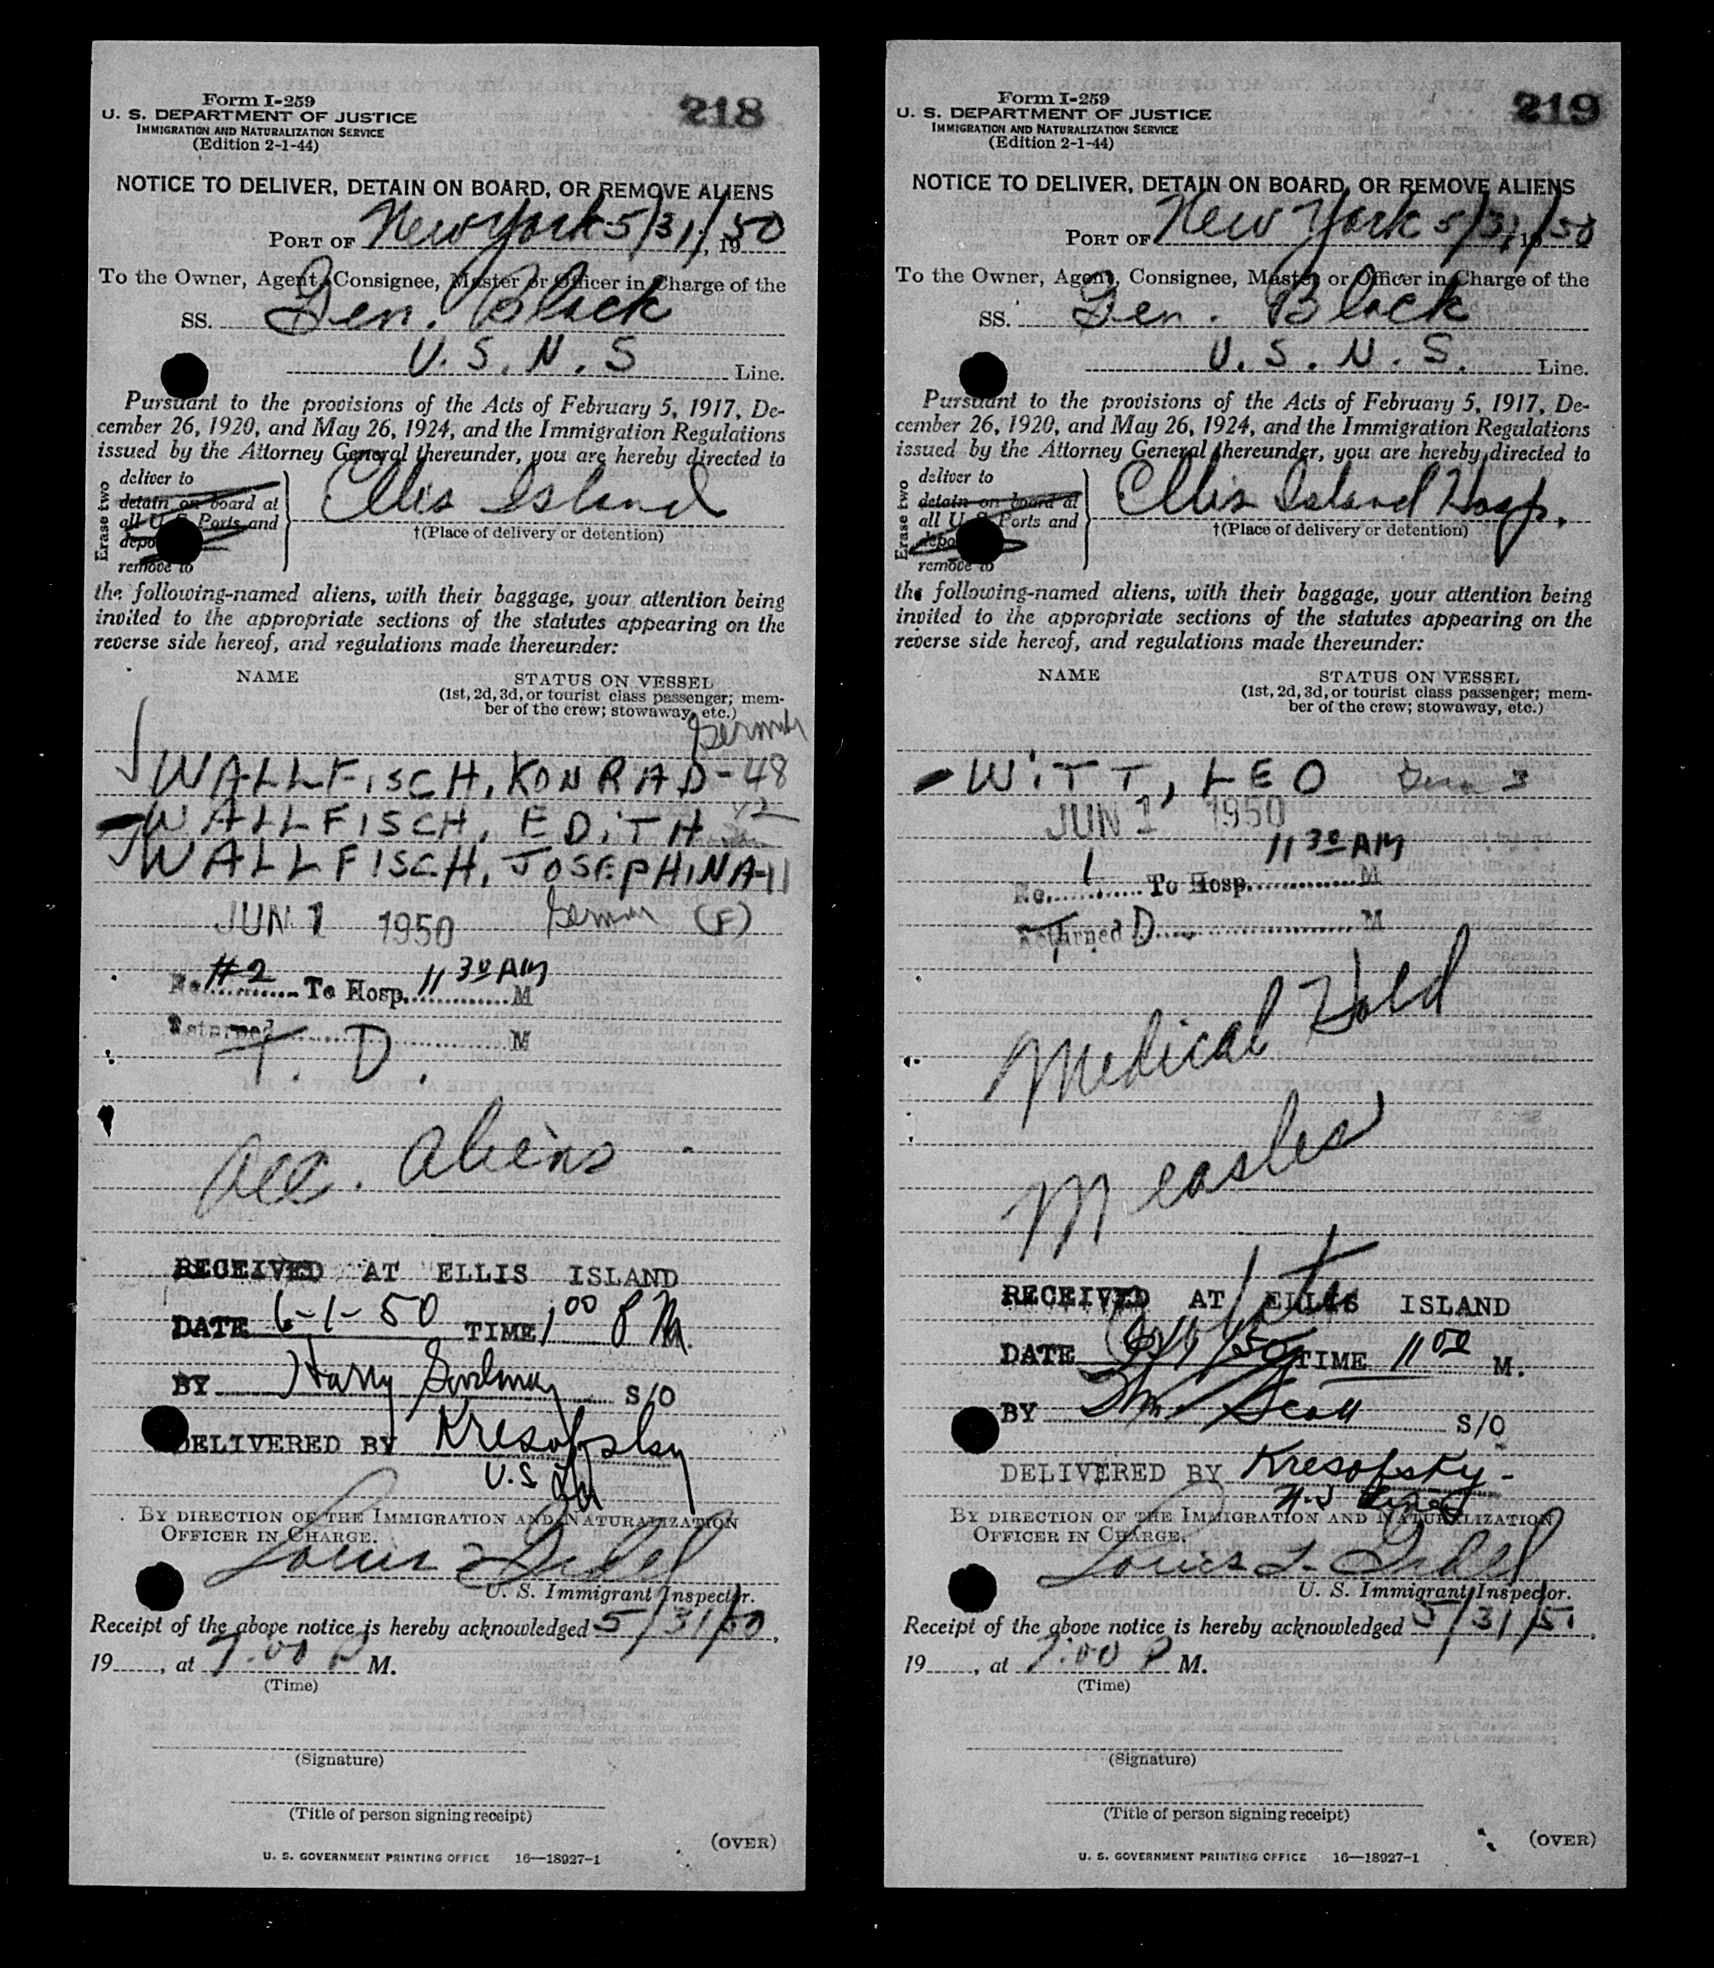 Form I-259
218
U. S. DEPARTMENT OF JUSTICE
IMMIGRATION AND NATURALIZATION SERVICE
(Edition 2-1-44)
NOTICE TO DELIVER, DETAIN ON BOARD, OR REMOVE ALIENS
PORT OF New York 5/31/, 1950
To the Owner, Agent, Consignee, Master or Officer in Charge of the
SS. Gen. Black
U. S. N. S Line.
Pursuant to the provisions of the Acts of February 5, 1917, De-
cember 26, 1920, and May 26, 1924, and the Immigration Regulations
issued by the Attorney General thereunder, you are hereby directed to
Erase two
deliver to
detain on board at
all U. S. Ports and
remove to
Ellis Island
†(Place of delivery or detention)
the following-named aliens, with their baggage, your attention being
invited to the appropriate sections of the statutes appearing on the
reverse side hereof, and regulations made thereunder:
NAME STATUS ON VESSEL
(1st, 2d, 3d, or tourist class passenger; mem-
ber of the crew; stowaway, etc.)
WALLFISCH, KONRAD - 48
WALLFISCH, EDITH 42
WALLFISCH, JOSEPHINA - 11
JUN 1 1950 German (F)
No. #2 To Hosp. 11 30 AM M
Returned T. D. M
All. Aliens
RECEIVED AT ELLIS ISLAND
DATE 6-1-50 TIME 1 00 P M.
BY Harry S/O
DELIVERED BY Kresofsky
U.S
BY DIRECTION OF THE IMMIGRATION AND NATURALIZATION
OFFICER IN CHARGE.
Louis
U. S. Immigrant Inspector.
Receipt of the above notice is hereby acknowledged 5/31/50,
19, at 7:00 P M.
(Time)
(Signature)
(Title of person signing receipt)
(OVER)
U. S. GOVERNMENT PRINTING OFFICE 16—18927-1
Form I-259
219
U. S. DEPARTMENT OF JUSTICE
IMMIGRATION AND NATURALIZATION SERVICE
(Edition 2-1-44)
NOTICE TO DELIVER, DETAIN ON BOARD, OR REMOVE ALIENS
PORT OF New York 5/31/, 1950
To the Owner, Agent, Consignee, Master or Officer in Charge of the
SS. Gen. Black
U. S. N. S. Line.
Pursuant to the provisions of the Acts of February 5, 1917, De-
cember 26, 1920, and May 26, 1924, and the Immigration Regulations
issued by the Attorney General thereunder, you are hereby directed to
Erase two
deliver to
detain on board at
all U. S. Ports and
remove to
Ellis Island Hosp.
†(Place of delivery or detention)
the following-named aliens, with their baggage, your attention being
invited to the appropriate sections of the statutes appearing on the
reverse side hereof, and regulations made thereunder:
NAME STATUS ON VESSEL
(1st, 2d, 3d, or tourist class passenger; mem-
ber of the crew; stowaway, etc.)
WITT, LEO
JUN 1 1950
No. 1 To Hosp. 11 30 AM M
Returned T. D. M
Medical Hold
Measles
RECEIVED AT ELLIS ISLAND
DATE 6/1/50 TIME 11 00 M.
BY Wm Scott S/O
DELIVERED BY Kresofsky -
BY DIRECTION OF THE IMMIGRATION AND NATURALIZATION
OFFICER IN CHARGE.
Louis
U. S. Immigrant Inspector.
Receipt of the above notice is hereby acknowledged 5/31/50,
19, at 7:00 P M.
(Time)
(Signature)
(Title of person signing receipt)
(OVER)
U. S. GOVERNMENT PRINTING OFFICE 16—18927-1